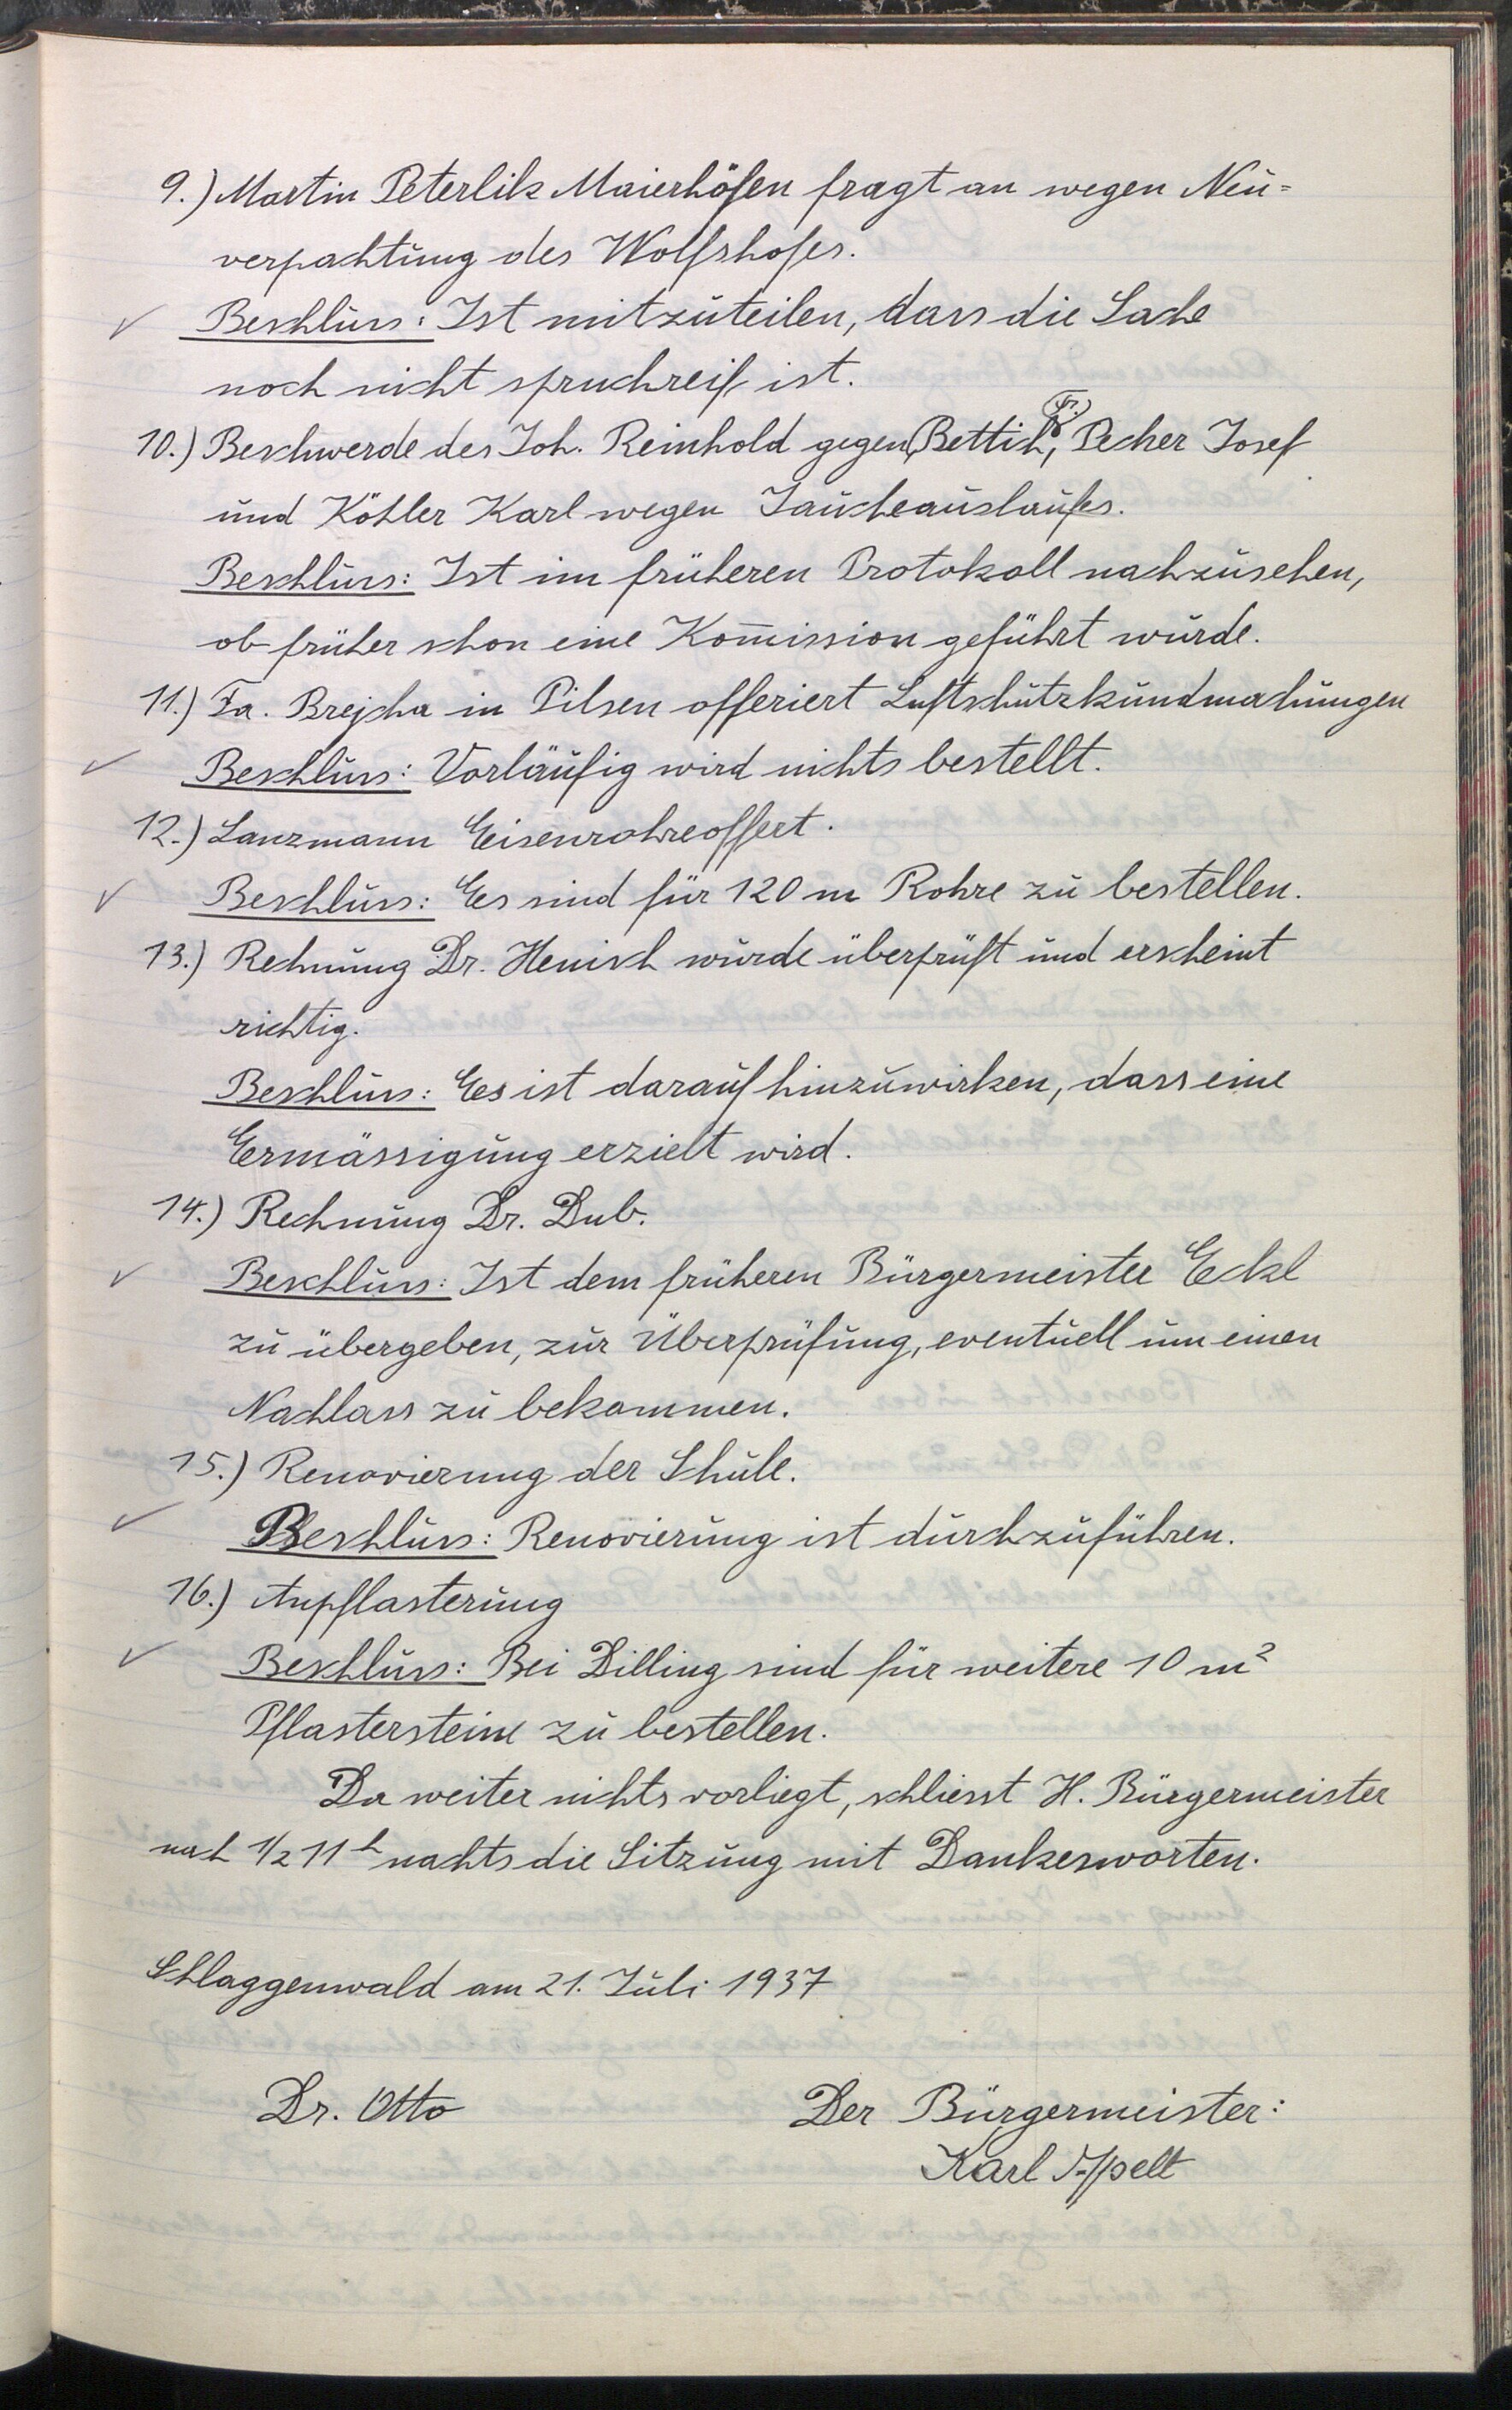 9.) Martin Peterlik Maierhöfen fragt an wegen Neu=
verpachtung des Wolfshofes.
✓ Beschluss: Ist mitzuteilen, dass die Sache
noch nicht spruchreif ist.
10.) Beschwerde des Joh. Reinhold gegen Bettih, Fr. Pecher Josef
und Köhler Karl wegen Jaucheauslaufes.
Beschluss: Ist im früheren Protokoll nachzusehen,
ob früher schon eine Kom̄ission geführt wurde.
11.) Fa. Brejcha in Pilsen offeriert Luftschutzkundmachungen
✓ Beschluss: Vorläufig wird nichts bestellt.
12.) Lanzmann Eisenrohreoffert.
✓ Beschluss: Es sind für 120 m Rohre zu bestellen.
13.) Rechnung Dr. Henisch wurde überprüft und erscheint
richtig.
Beschluss: Es ist darauf hinzuwirken, dass eine
Ermässigung erzielt wird.
14.) Rechnung Dr. Dub.
✓ Beschluss: Ist dem früheren Bürgermeister Eckl
zu übergeben, zur Überprüfung, eventuell um einen
Nachlass zu bekommen.
15.) Renovierung der Schule.
✓ Beschluss: Renovierung ist durchzuführen.
16.) Anpflasterung
✓ Beschluss: Bei Dilling sind für weitere 10 m²
Pflastersteine zu bestellen.
Da weiter nichts vorliegt, schliesst H. Bürgermeister
nach 1/2 11ʰ nachts die Sitzung mit Dankesworten.
Schlaggenwald am 21. Juli 1937
Dr. Otto Der Bürgermeister:
Karl Appelt